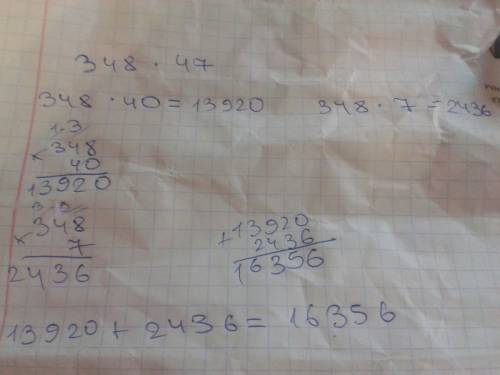 348 · 47
348 · 40 = 13920 348 · 7 = 2436
1 3
× 348
40
13920
348
× 7
2436
+ 13920
2436
16356
13920 + 2436 = 16356